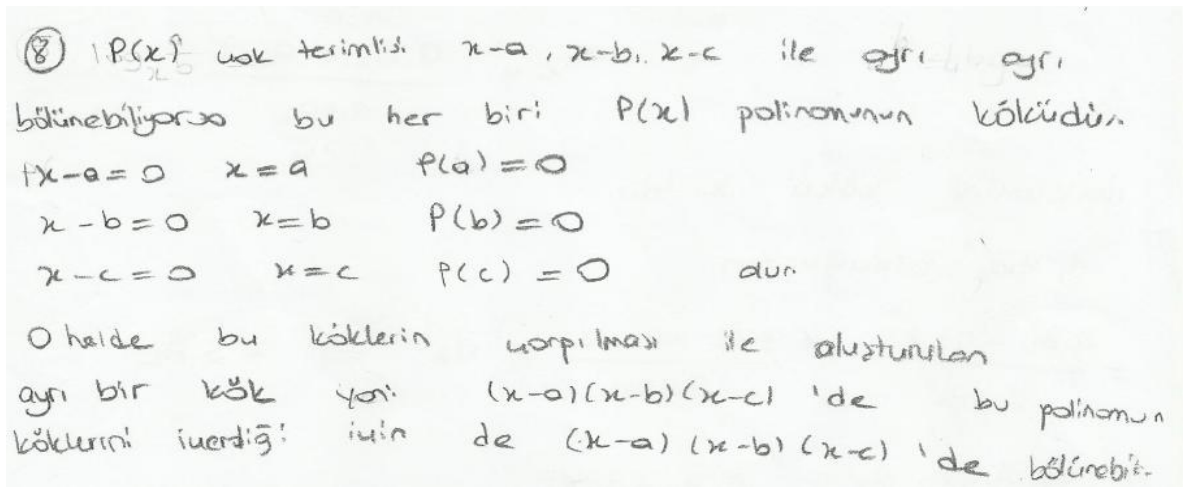 ⑧ P(x) çok terimlisi x-a, x-b, x-c ile ayrı ayrı
bölünebiliyorsa bu her biri P(x) polinomunun köküdür.
x-a=0 x=a P(a)=0
x-b=0 x=b P(b)=0
x-c=0 x=c P(c)=0 olur.
O halde bu köklerin çarpılması ile oluşturulan
ayrı bir kök yani (x-a)(x-b)(x-c) 'de bu polinomun
köklerini içerdiği için de (x-a)(x-b)(x-c) 'de bölünebilir.